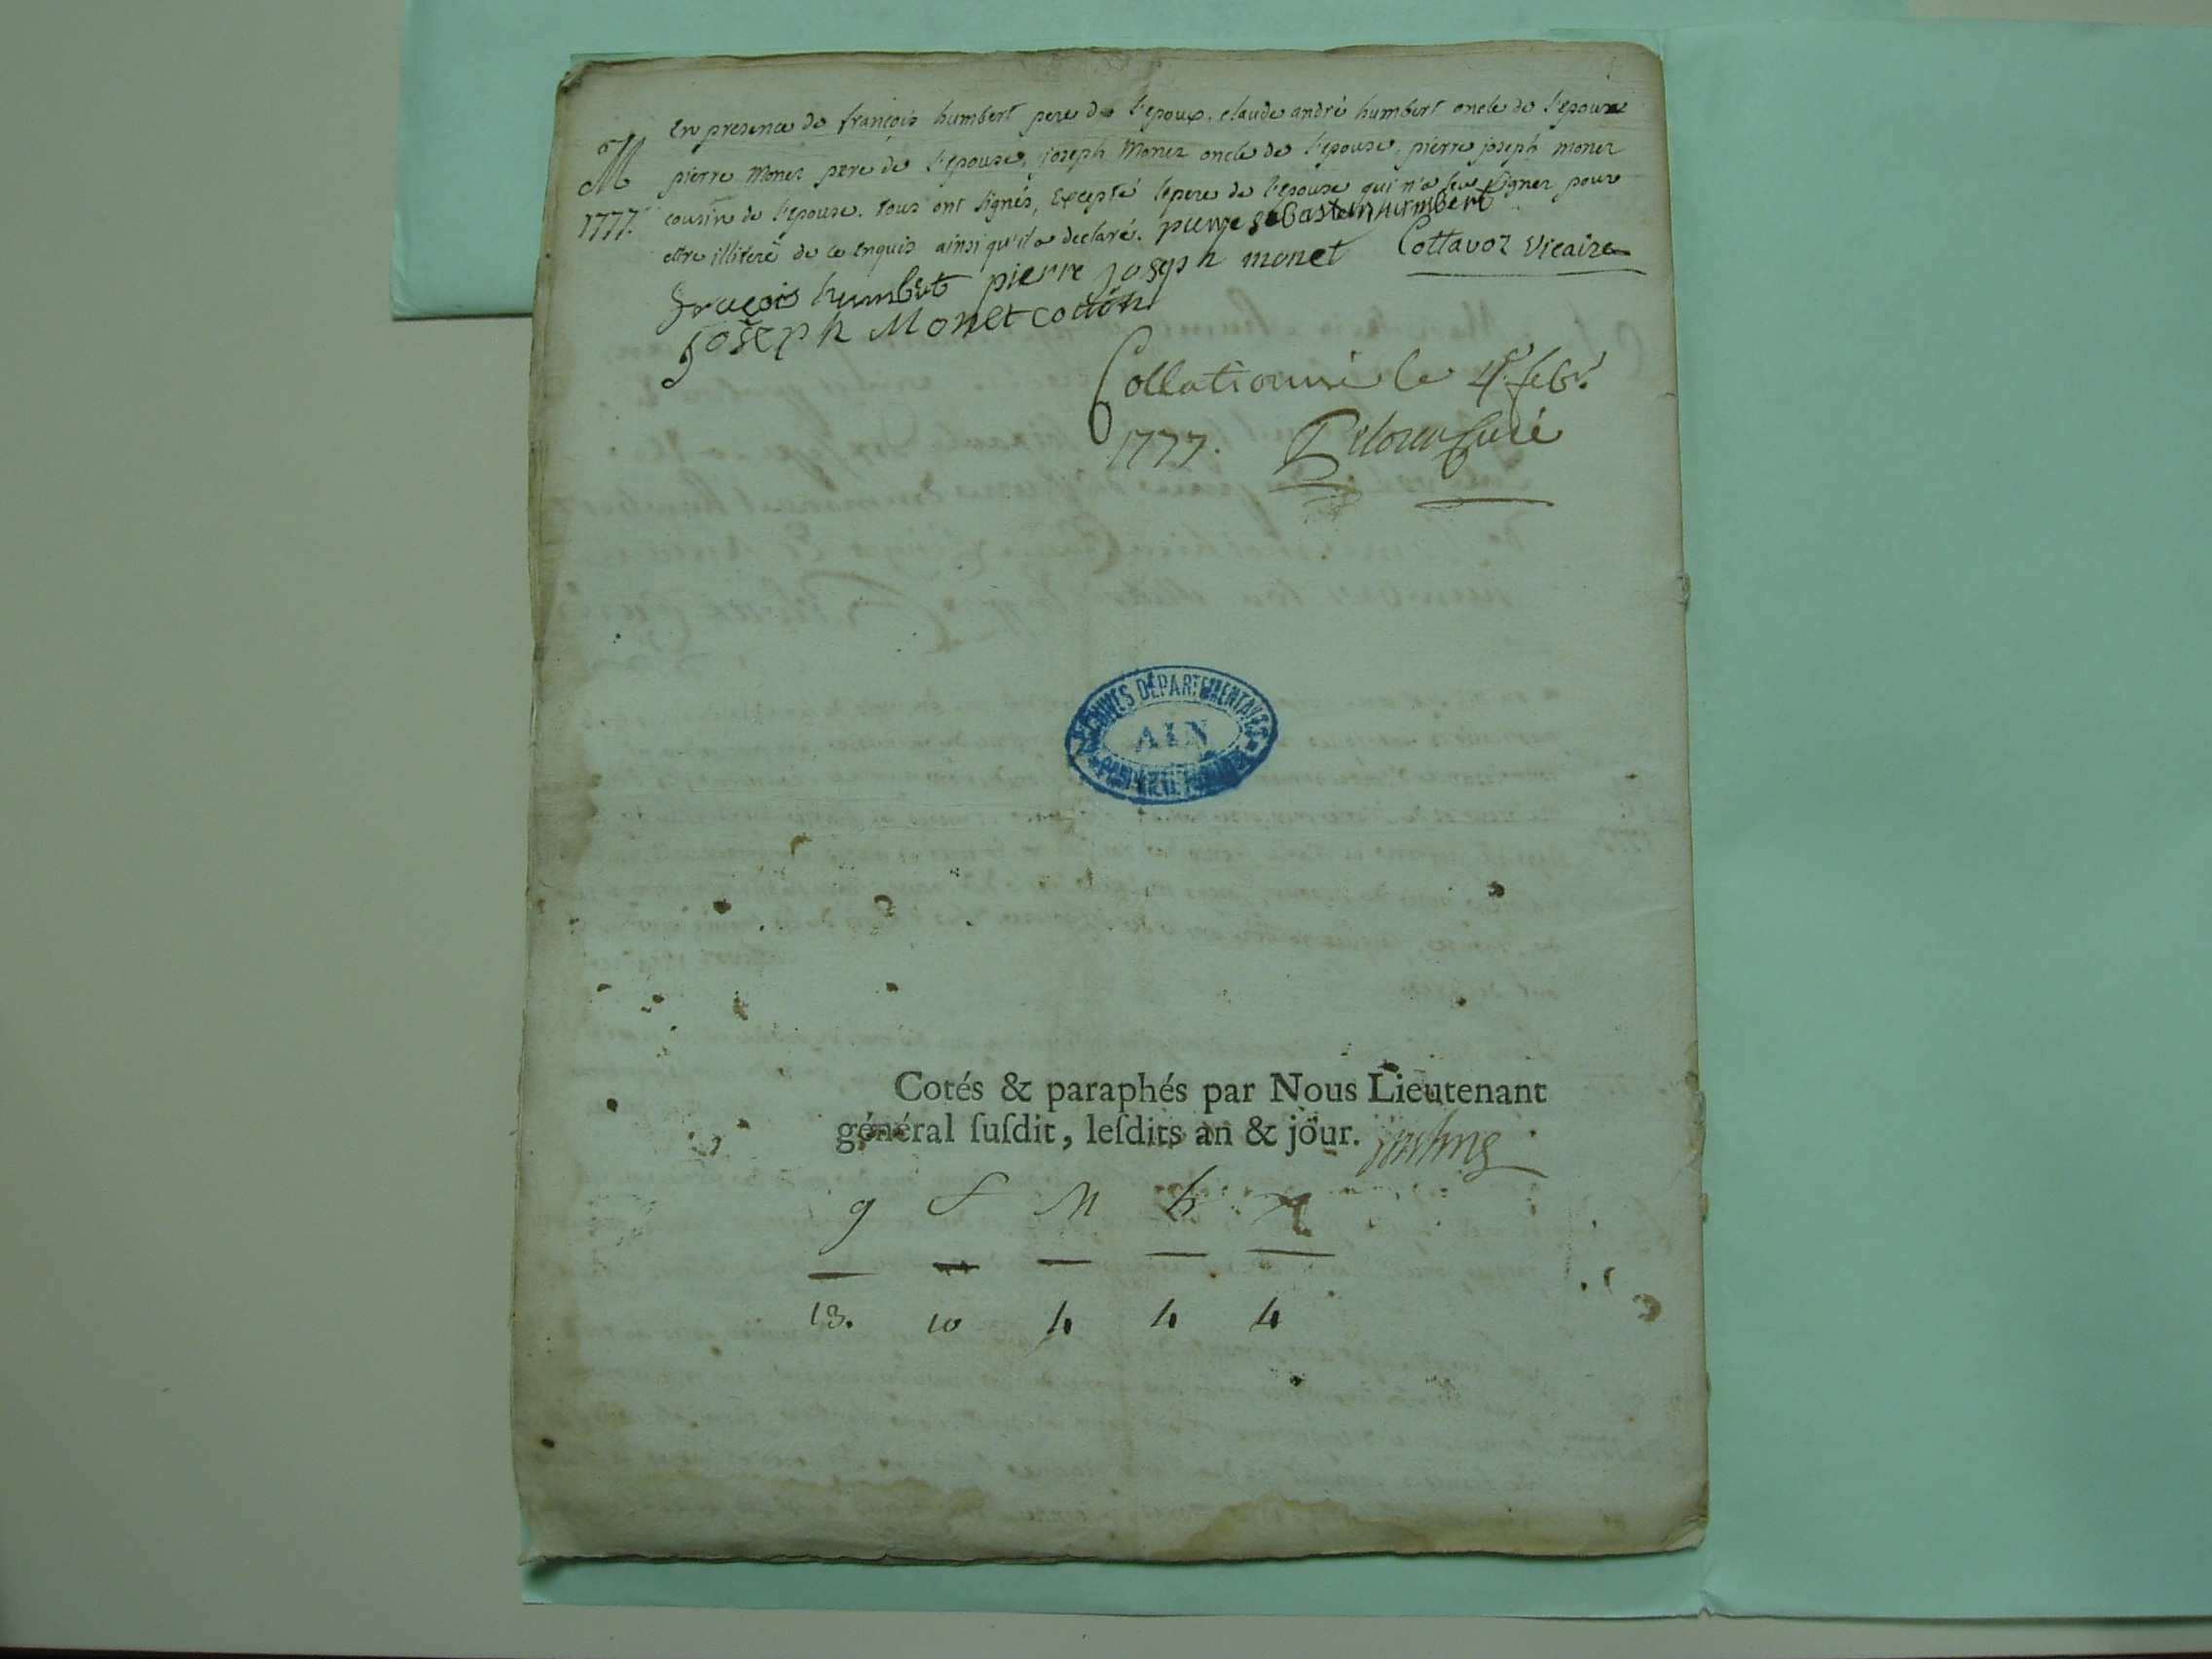 En presence de françois humbert pere de l'epoux, claude andré humbert oncle de l'epoux
M
1777.
pierre Monet pere de l'epouse, joseph Monet oncle de l'epouse, pierre joseph monet
cousin de l'epouse. tous ont signés, Excepté le pere de l'epouse qui n'a sçu signer pour
etre illiteré de ce enquis ainsi qu'il a declaré. pierre sebastien humbert
fraçois humbert pierre joseph monet Cottavoz vicaire
joseph Monet
Collationné le 4e febr.
1777. Curé
ARCHIVES DÉPARTEMENTALES
AIN
Cotés & paraphés par Nous Lieutenant
général ſuſdit, leſdits an & jour.
g S M h
13. 10 4 4 4